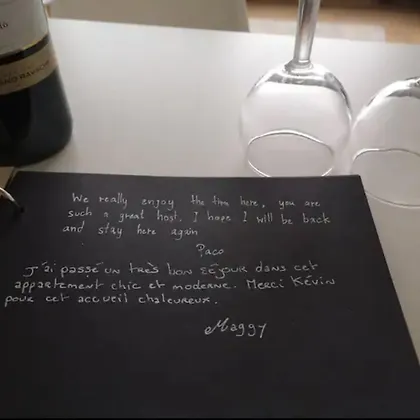 We really enjoy the time here, you are
such a great host. I hope I will be back
and stay here again
Paco
J'ai passé un très bon séjour dans cet
appartement chic et moderne. Merci Kévin
pour cet accueil chaleureux.
Maggy